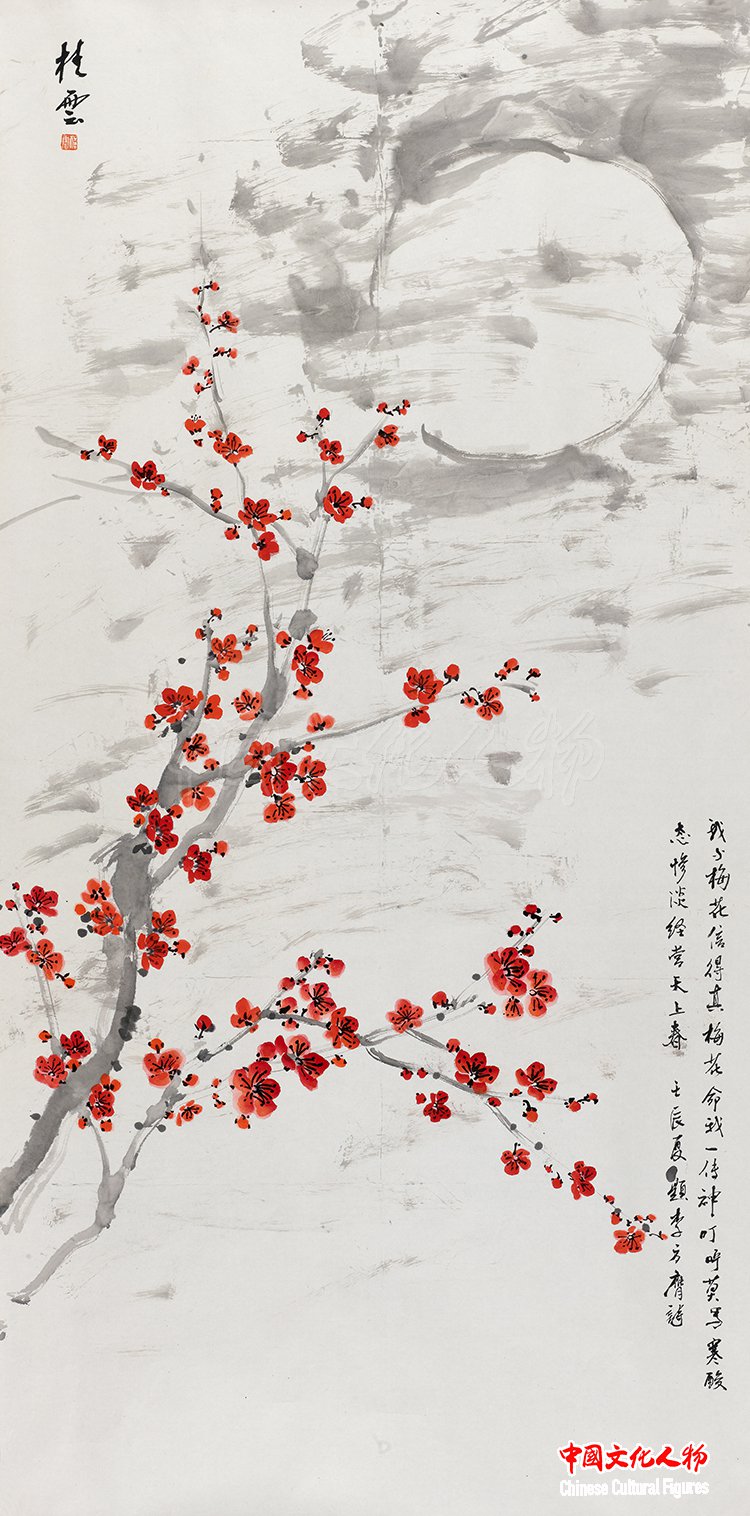 桂雲
我与梅花信得真梅花命我一传神叮咛莫写寒酸
态惨淡经营天上春 壬辰夏 題李方膺詩
中國文化人物
中國文化人物
Chinese Cultural Figures